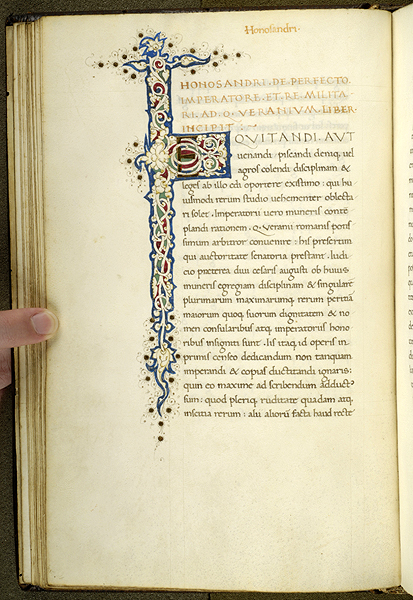 Honosandri·
HONOSANDRI·DE·PERFECTO
IMPERATORE·ET·RE·MILITA
RI·AD·Q·VERANIVM·LIBER·
INCIPIT
EQVITANDI·AVT
uenandi· piscandi deniq; uel
agros colendi disciplinam &
leges ab illo edi oportere existimo: qui hu
iusmodi rerum studio uehementer oblecta
ri solet. Imperatorii uero muneris contē
plandi rationem· Q·Veranii romanis potis
simum arbitror conuenire: his presertim
qui auctoritate senatoria prestant· Iudi
cio praeterea diui cesaris augusti ob huius
muneris egregiam disciplinam & singularē
plurimarum maximarumq; rerum peritiā
maiorum quoq; suorum dignitatem & no
men consularibus atq; imperatoriis hono
ribus insigniti sunt· Iis itaq; id operis in
primis censeo dedicandum non tanquam
imperandi & copias ductitandi ignaris:
quin eo maxime ad scribendum adduct'
sum: quod pleriq; ruditate quadam atq;
inscitia rerum: alii aliorū facta haud recte